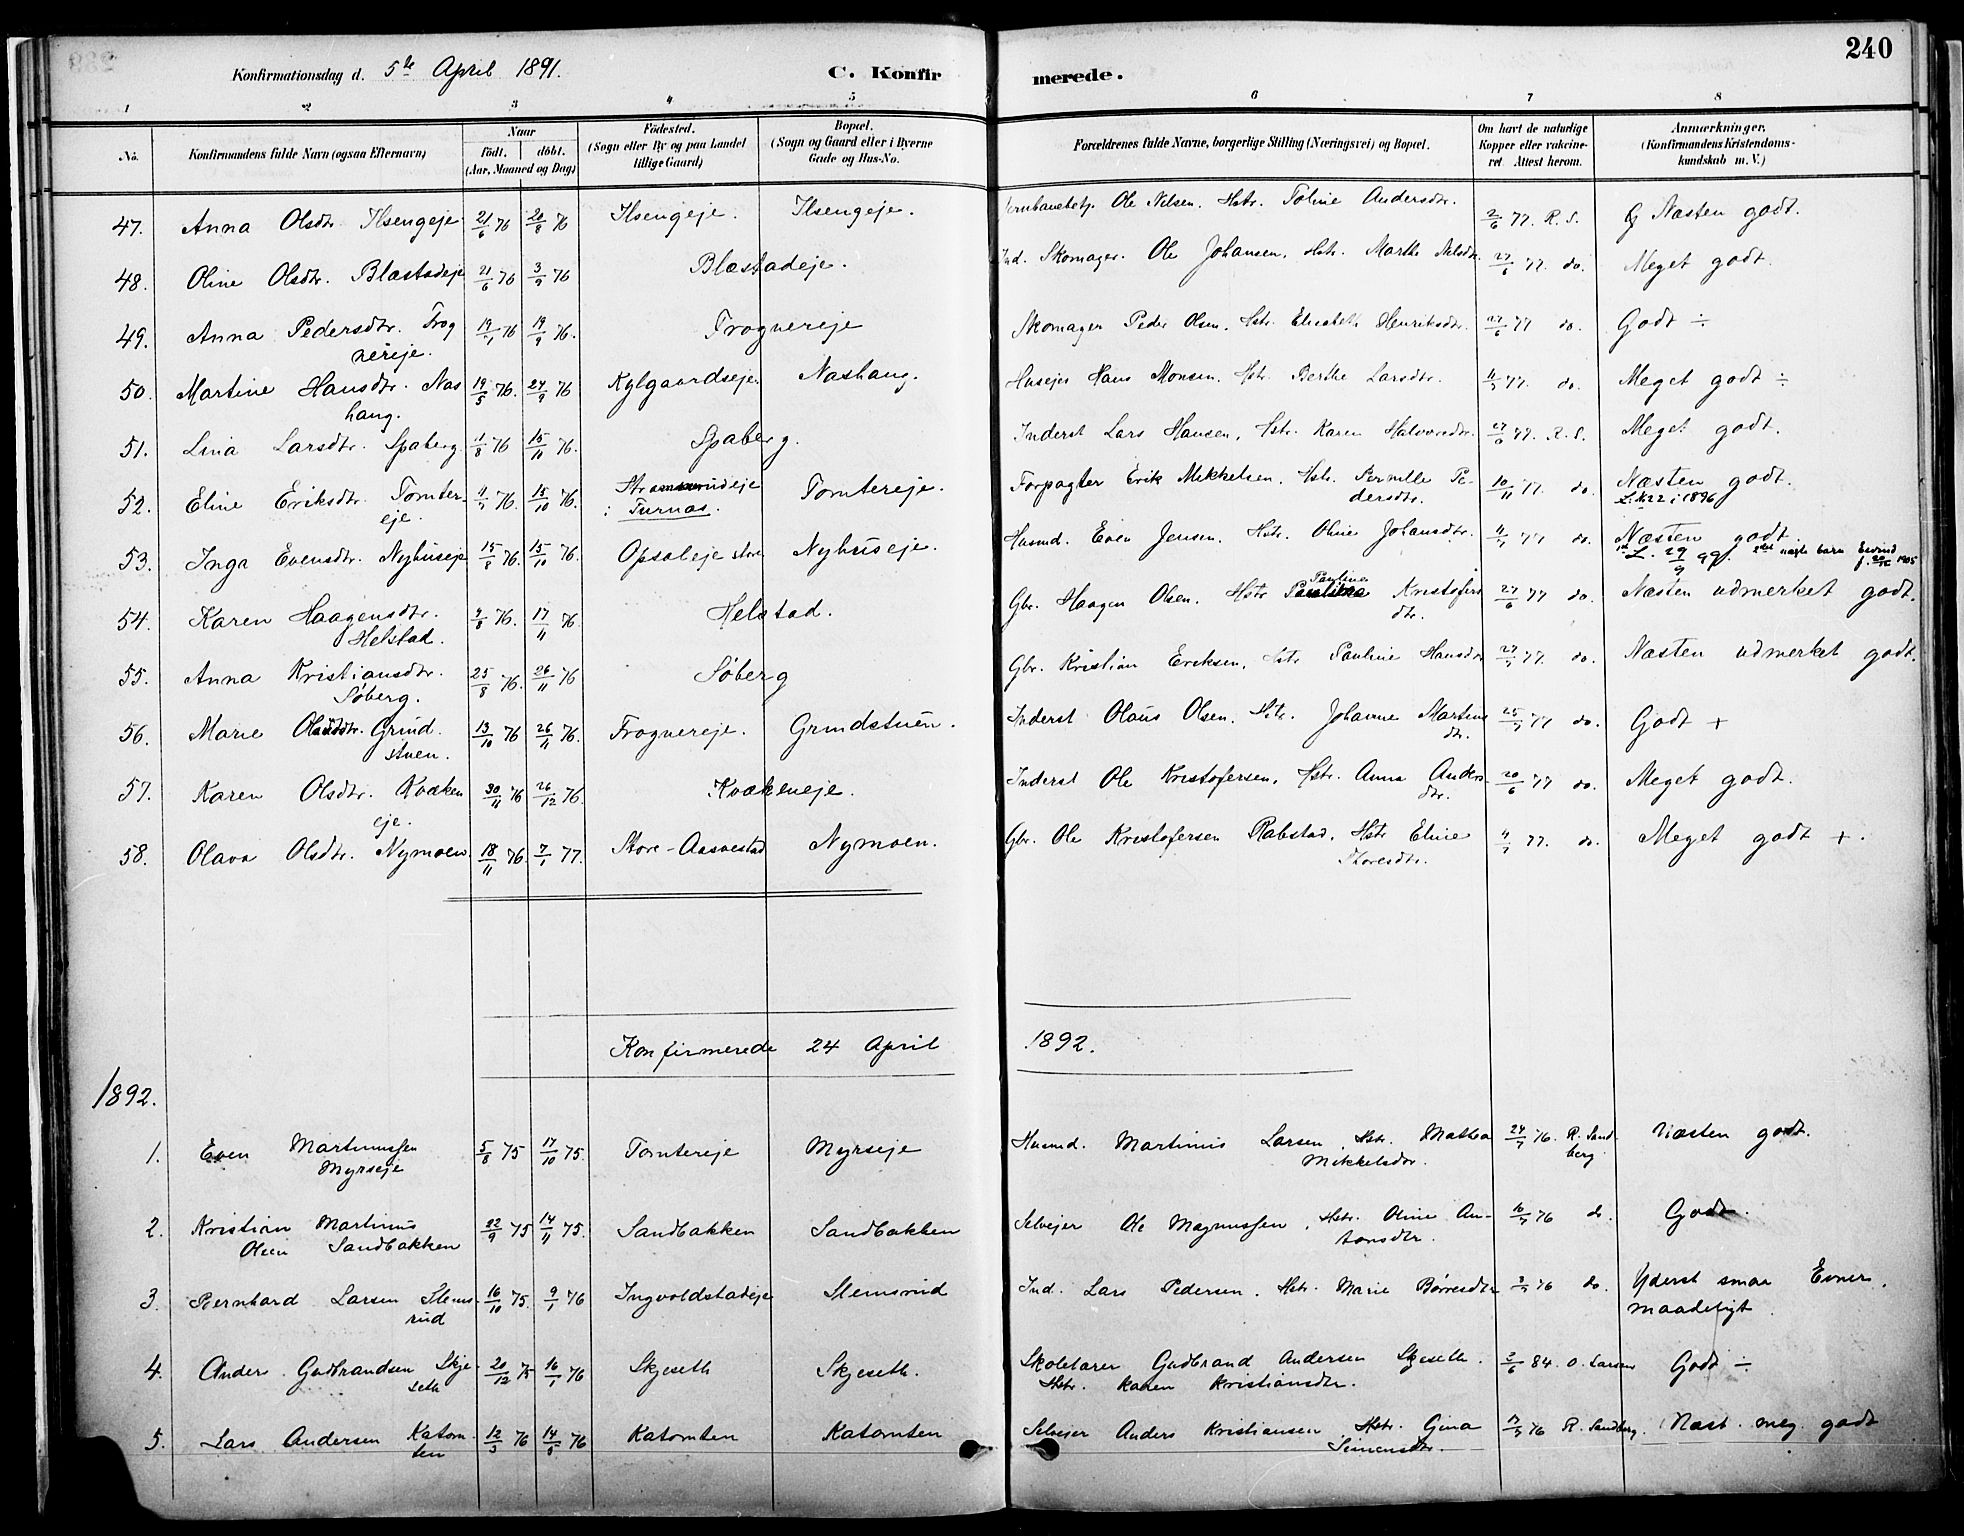 240
Konfirmationsdag d. 5te April 1891. C. Konfirmerede.
1 2 3 4 5 6 7 8
No. Konfirmandens fulde Navn (ogsaa Efternavn) Naar født. døbt. (Aar, Maaned og Dag) Fødested. (Sogn eller By og paa Landet tillige Gaard) Bopæl. (Sogn og Gaard eller i Byerne Gade og Hus-No. Forældrenes fulde Navne, borgerlige Stilling (Næringsvei) og Bopæl. Om havt de naturlige Kopper eller vakcineret Attest herom. Anmærkninger. (Konfirmandens Kristendomskundskab m. V.)
47. Anna Olsdtr. Ilsengeje 21/6 76 20/8 76 Ilsengeje. Ilsengeje. Ole Nilsen. Hstr. Toline Andersdtr. 2/6 77. R. S. Næsten godt.
48. Oline Olsdtr. Blæstadeje 21/6 76 3/9 76 Blæstadeje. Ind. Skomager. Ole Johansen. Hstr. Marthe Nilsdtr. 27/6 77. do. Meget godt.
49. Anna Pedersdtr. Frog 19/1 76 19/9 76. Frognereje Skomager Peder Olsen. Hstr. Elisabeth Henriksdtr. 27/6 77 do. Godt ÷
nereje.
50. Martine Hansdtr. Nas 19/5 76. 24/9 76 Kylgaardseje. Nashaug. Husejer Hans Monsen. Hstr. Berthe Larsdtr. 4/7 77. do. Meget godt ÷
haug.
51. Lina Larsdtr. Spaberg. 11/8 76 15/10 76. Spaberg. Inderst Lars Hansen, Hstr. Karen Halvorsdtr. 27/6 77. R. S. Meget godt.
52. Eline Eriksdtr. Tomter- 4/7 76. 15/10 76. Tomtereje. Forpagter Erik Mikkelsen. Hstr. Pernille Pe- 10/11 77. do. Næsten godt.
eje. i Furnæs. dersdtr. L. N. 22 i 1896
53. Inga Evensdtr. Nyhuseje 15/8 76. 15/10 76. Opsaleje store Nyhuseje. Husmd. Even Jensen. Hstr. Oline Johansdtr. 4/7 77 do. Næsten godt.
L. 29/9 99.
54. Karen Haagensdtr. 9/8 76. 17/11 76. Helstad. Gbr. Haagen Olsen. Hstr. Pauline Kristofers 27/6 77 do. Næsten udmerket godt.
Helstad. dtr.
55. Anna Kristiansdtr. 25/8 76. 26/11 76 Søberg Gbr. Kristian Eriksen. Hstr. Pauline Hansdtr 27/7 77. do. Næsten udmerket godt.
Søberg.
56. Marie Grund 13/10 76 26/11 76. Frognereje. Grundstuen. Inderst Olaus Olsen. Hstr. Johanne Martins 25/7 77 do. Godt +
stuen. dtr.
57. Karen Olsdtr. Kvæken 30/11 76 26/12 76. Kvækeneje. Inderst Ole Kristofersen. Hstr. Anna Anders 20/6 77 do. Meget godt.
eje. dtr.
58. Olava Olsdtr. Nymoen. 18/11 76. 7/1 77. Store-Aasvestad Nymoen. Gbr. Ole Kristofersen Rabstad. Hstr Eline 4/7 77. do. Meget godt +.
Thoresdtr.
Konfirmerede 24 April 1892.
1892.
1. Even Martinussen 5/8 75 17/10 75. Tomtereje Myrseje Husmd. Martinus Larsen, Hstr. Mathea 24/7 76. R. Sand- Næsten godt.
Myrseje Mikkelsdtr. berg
2. Kristian Martinus 22/9 75 14/11 75. Sandbakken Sandbakken Selvejer Ole Magnussen, Hstr. Oline An- 16/7 76 do Godt.
Olsen Sandbakken tonsdtr.
3. Bernhard Larsen Stems- 16/10 75. 9/1 76 Ingvoldstadeje Stemsrud Ind. Lars Pedersen. Hstr. Marie Børresdtr 3/7 76 do. Yderst smaa Evner.
rud maadeligt.
4. Anders Gudbrandsen Skje- 20/12 75 16/1 76 Skjeseth Skjeseth. Skolelærer Gudbrand Andersen Skjeseth. 3/6 84. O. Larsen Godt ÷
seth Hstr. Karen Kristiansdtr.
5. Lars Andersen Katom- 12/3 76 14/5 76 Katomten Katomten Selvejer Anders Kristiansen Hstr. Gina 17/7 76 R. Sandberg. Næst. meg. godt
ten Simensdtr.